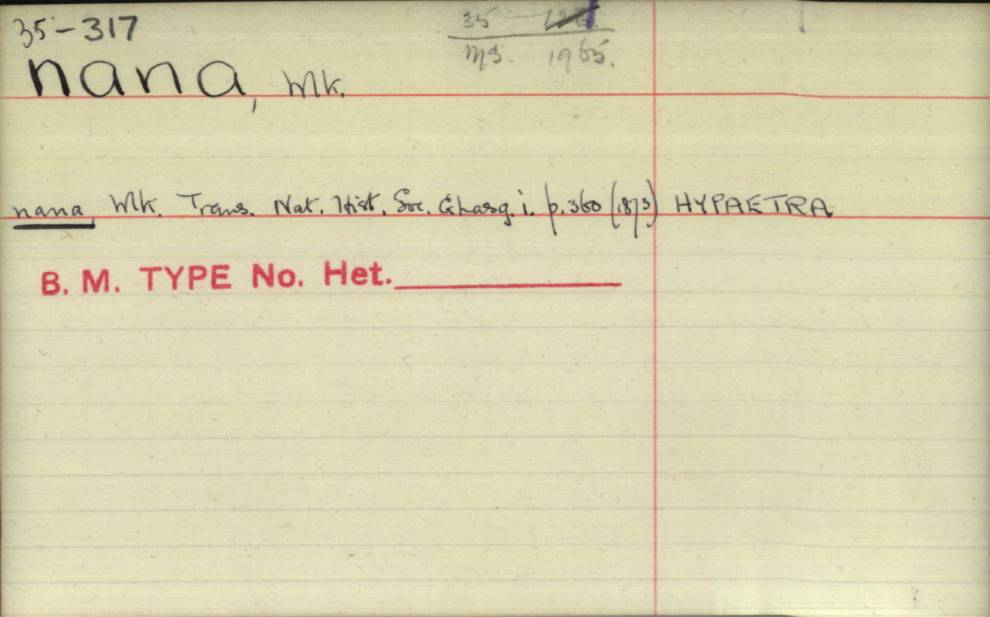 35-317
35
MS. 1965.
nana, Wlk.
nana Wlk. Trans. Nat. Hist. Soc. Glasg. i. p. 360 (1873) HYPAETRA
B. M. TYPE No. Het.